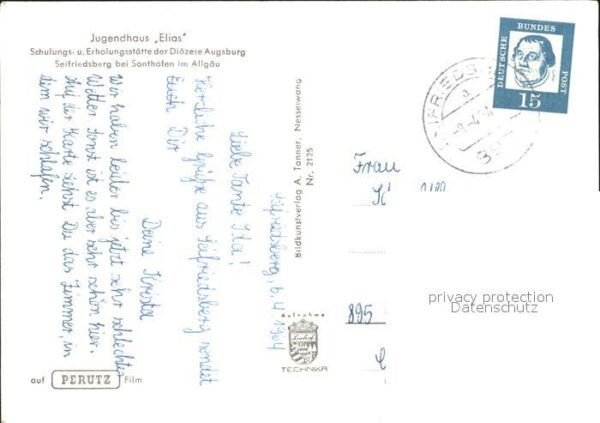 Jugendhaus „Elias"
Schulungs- u. Erholungsstätte der Diözese Augsburg
Seifriedsberg bei Sonthofen im Allgäu
Seifriedsberg, 6.4.1964
Liebe Tante Ida!
Herzliche Grüße aus Seifriedsberg sendet
Euch Dir
Deine Krista
Wir haben leider bis jetzt sehr schlechtes
Wetter sonst ist es aber sehr schön hier.
Auf der Karte siehst Du das Zimmer, in
dem wir schlafen.
auf PERUTZ Film
Bildkunstverlag A. Tanner, Nesselwang
Nr. 2125
Aufnahme
Linhof
TECHNIKA
DEUTSCHE
BUNDES
POST
15
Frau
895
privacy protection
Datenschutz